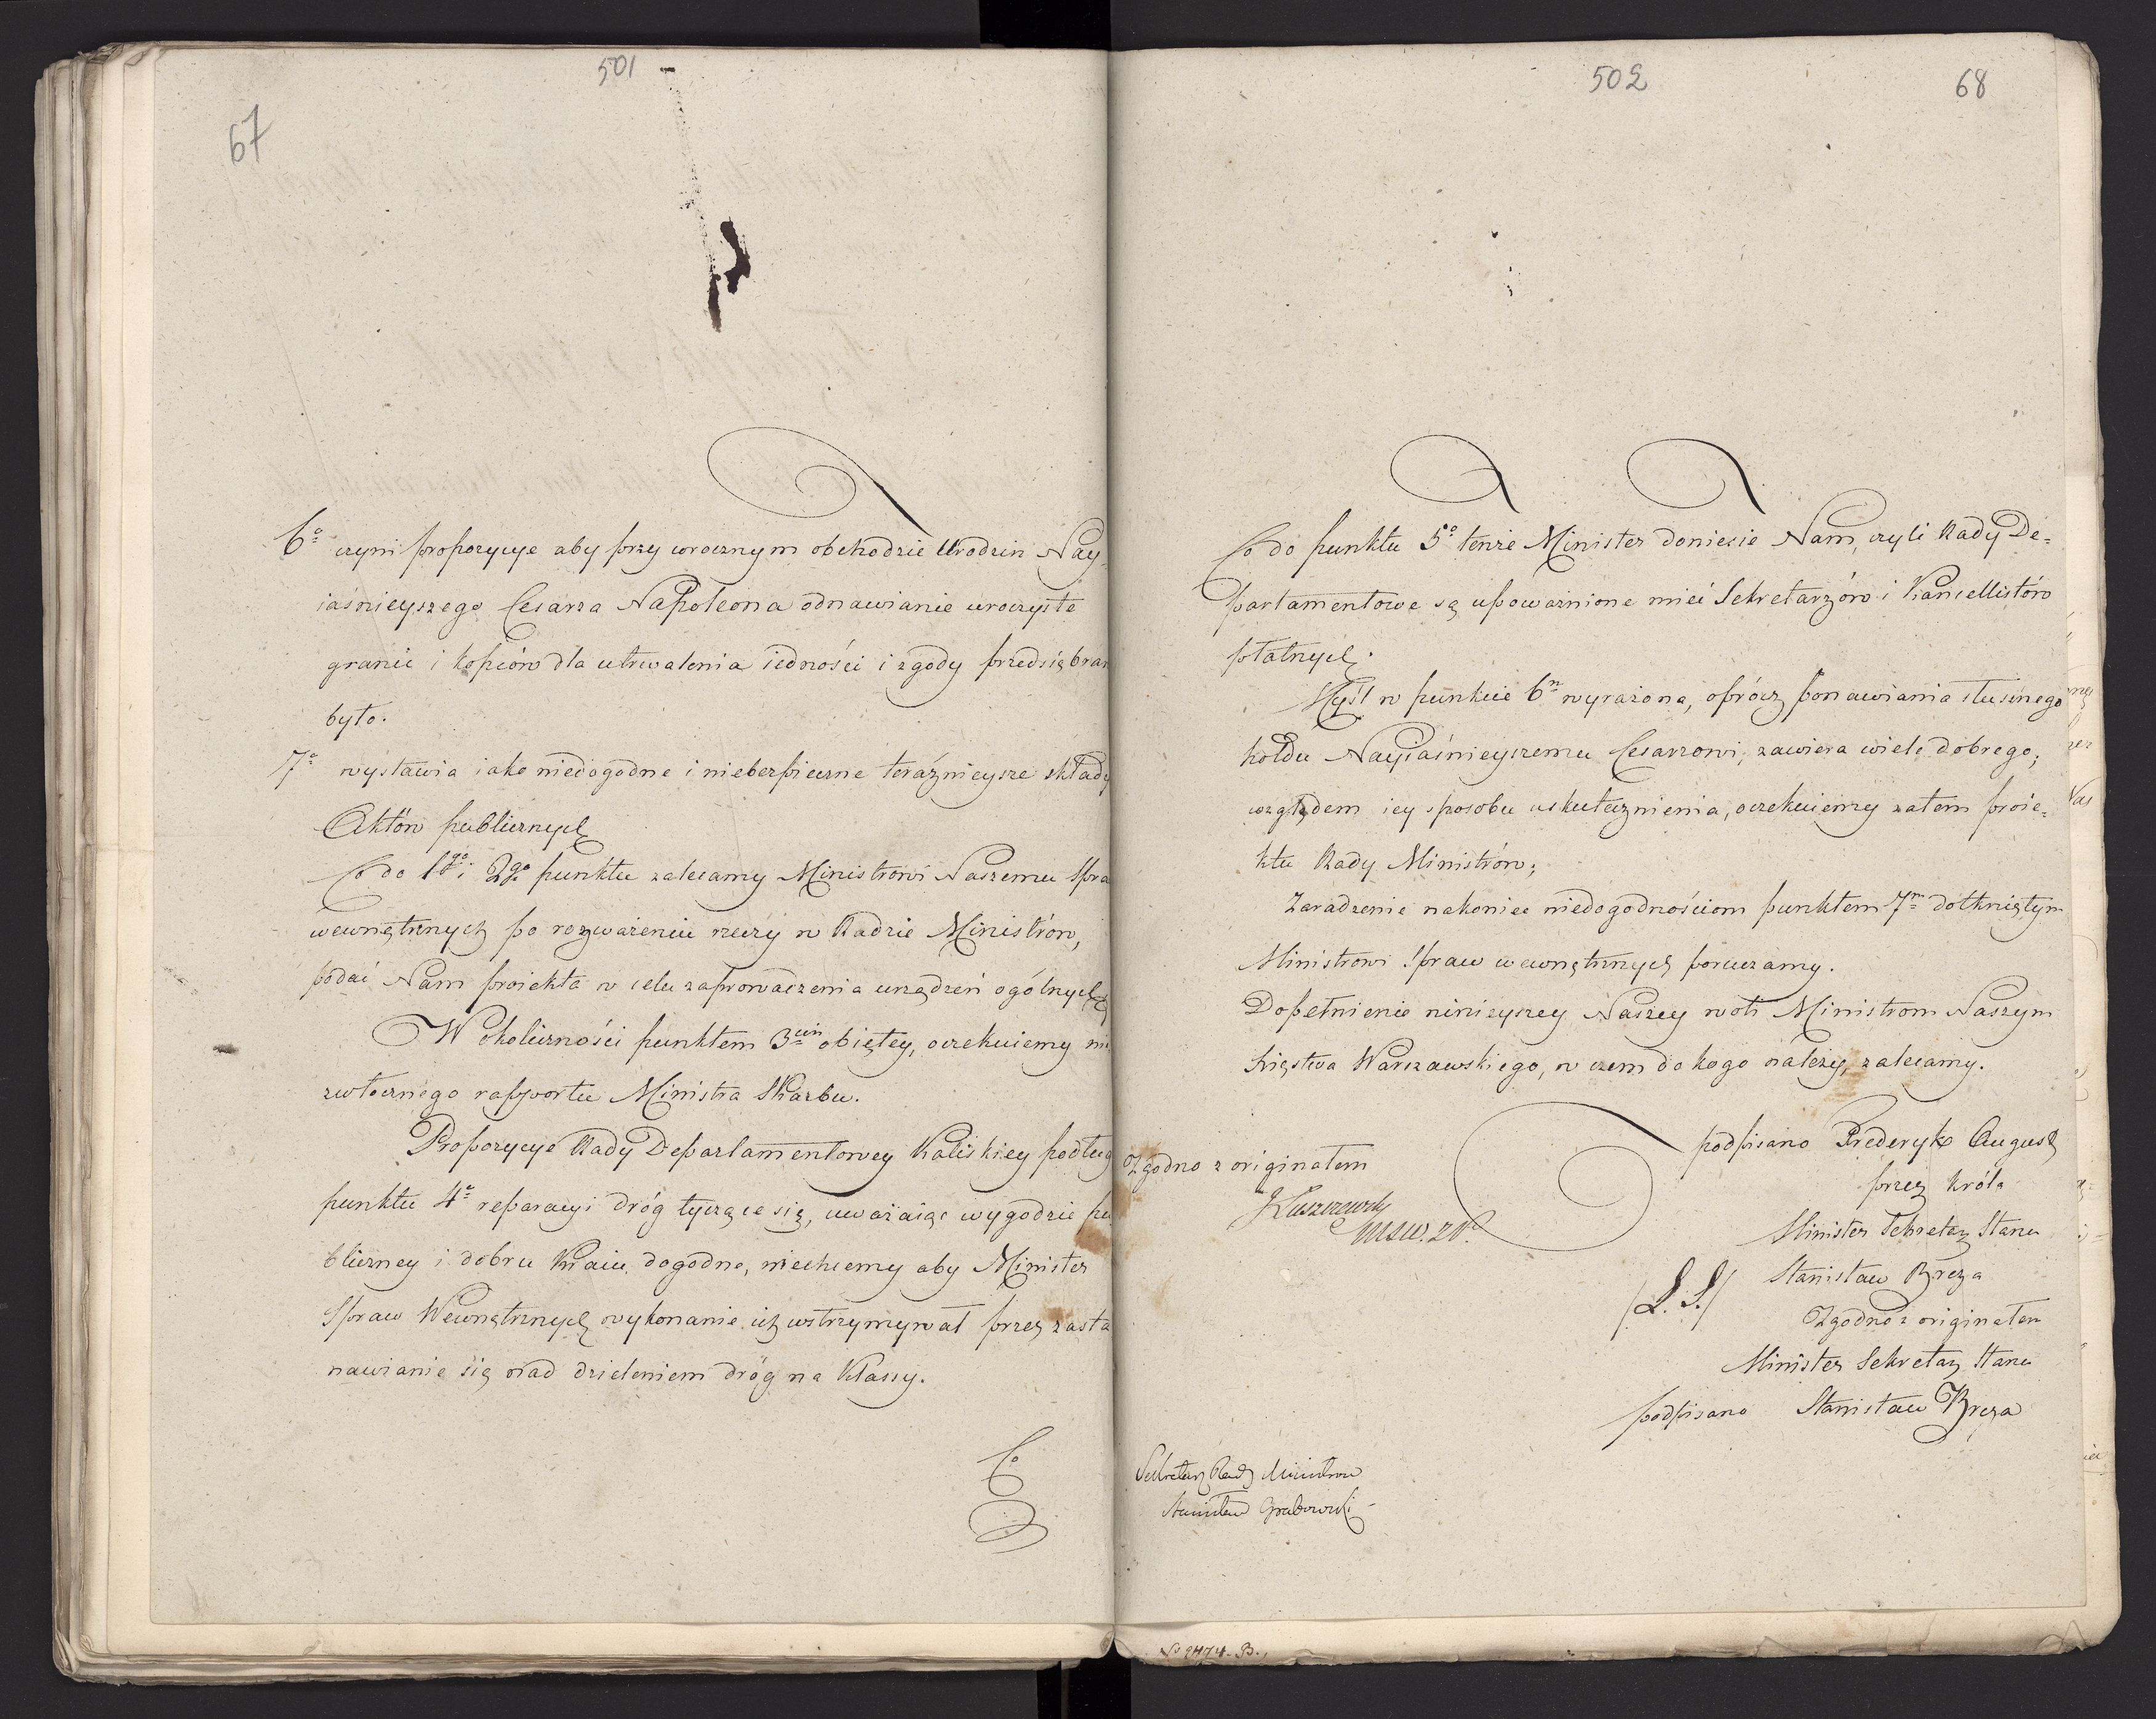 501
67
6º czyni propozycye aby przy wrocznym obchodzie Urodzin Nay-
iaśnieyszego Cesarza Napoleona odnawianie uroczyste
granic i kopców dla utrwalenia iedności i zgody przedsiębran
było.
7º wystawia iako niedogodne i niebezpieczne teraźnieysze składy
Aktów publicznych
Co do 1go i 2go punktu zalecamy Ministrowi Naszemu Spra
wewnętrznych po rozważeniu rzeczy w Radzie Ministrów,
podać Nam proiekta w celu zaprowadzenia urządzeń ogólnych
W okoliczności punktem 3cim obiętey, oczekuiemy nie
zwłocznego rapportu Ministra Skarbu.
Propozycye Rady Departamentowey Kaliskiey podług
punktu 4º reparacyi dróg tyczące się, uważaiąc wygodzie pu
bliczney i dobru Kraiu dogodne, niechcemy aby Minister
Spraw Wewnętrznych wykonanie ich wstrzymywał przez zasta
nawianie się nad dzieleniem dróg na Klassy.
Co
502
68
Co do punktu 5º tenże Minister doniesie Nam, czyli Rady De=
partamentowe są upoważnione mieć Sekretarzów i Kancellistów
płatnych.
Myśl w punkcie 6m wyrażona, oprócz ponawiania słusznego
hołdu Nayiaśnieyszemu Cesarzowi, zawiera wiele dobrego;
względem iey sposobu uskutecznienia, oczekuiemy zatem proie=
ktu Rady Ministrów;
Zaradzenie nakoniec niedogodnościom punktem 7m dotkniętym
Ministrowi Spraw wewnętrznych poruczamy.
Dopełnienie ninieyszey Naszey woli Ministrom Naszym
Xięstwa Warszawskiego, w czem do kogo należy, zalecamy.
podpisano Frederyk August
przez króla
Minister Sekretarz Stanu
/L. S./ Stanisław Breza
Zgodno z originałem
Minister Sekretarz Stanu
podpisano Stanisław Breza
Zgodno z originałem
Sekretarz Rady Ministrów
Stanisław Grabowski